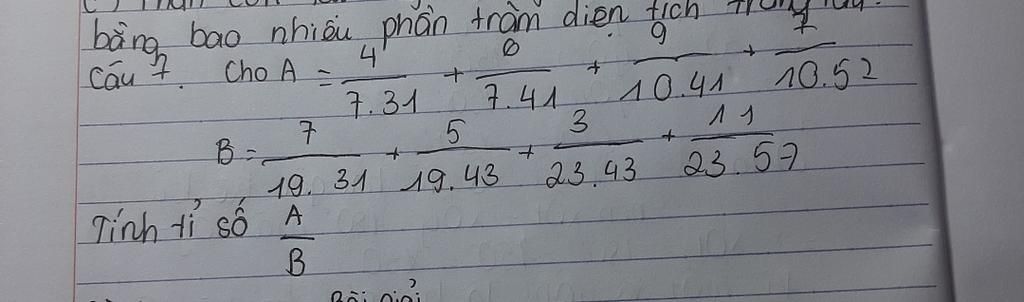 bằng bao nhiêu phần trăm diện tích
Câu 7. Cho A = 4/7.31 + 6/7.41 + 9/10.41 + 7/10.52
B = 7/19.31 + 5/19.43 + 3/23.43 + 11/23.57
Tính tỉ số A/B
Bài giải